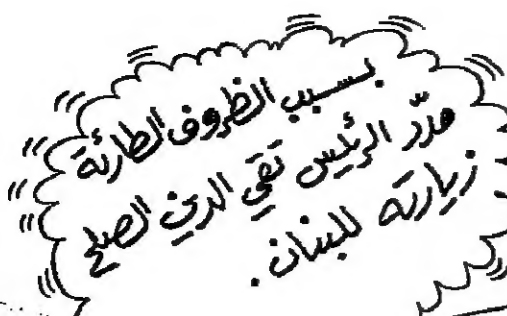 بسبب الظروف الطارئة
مدّد الرئيس تقي الدين الصلح
زيارته للبنان.